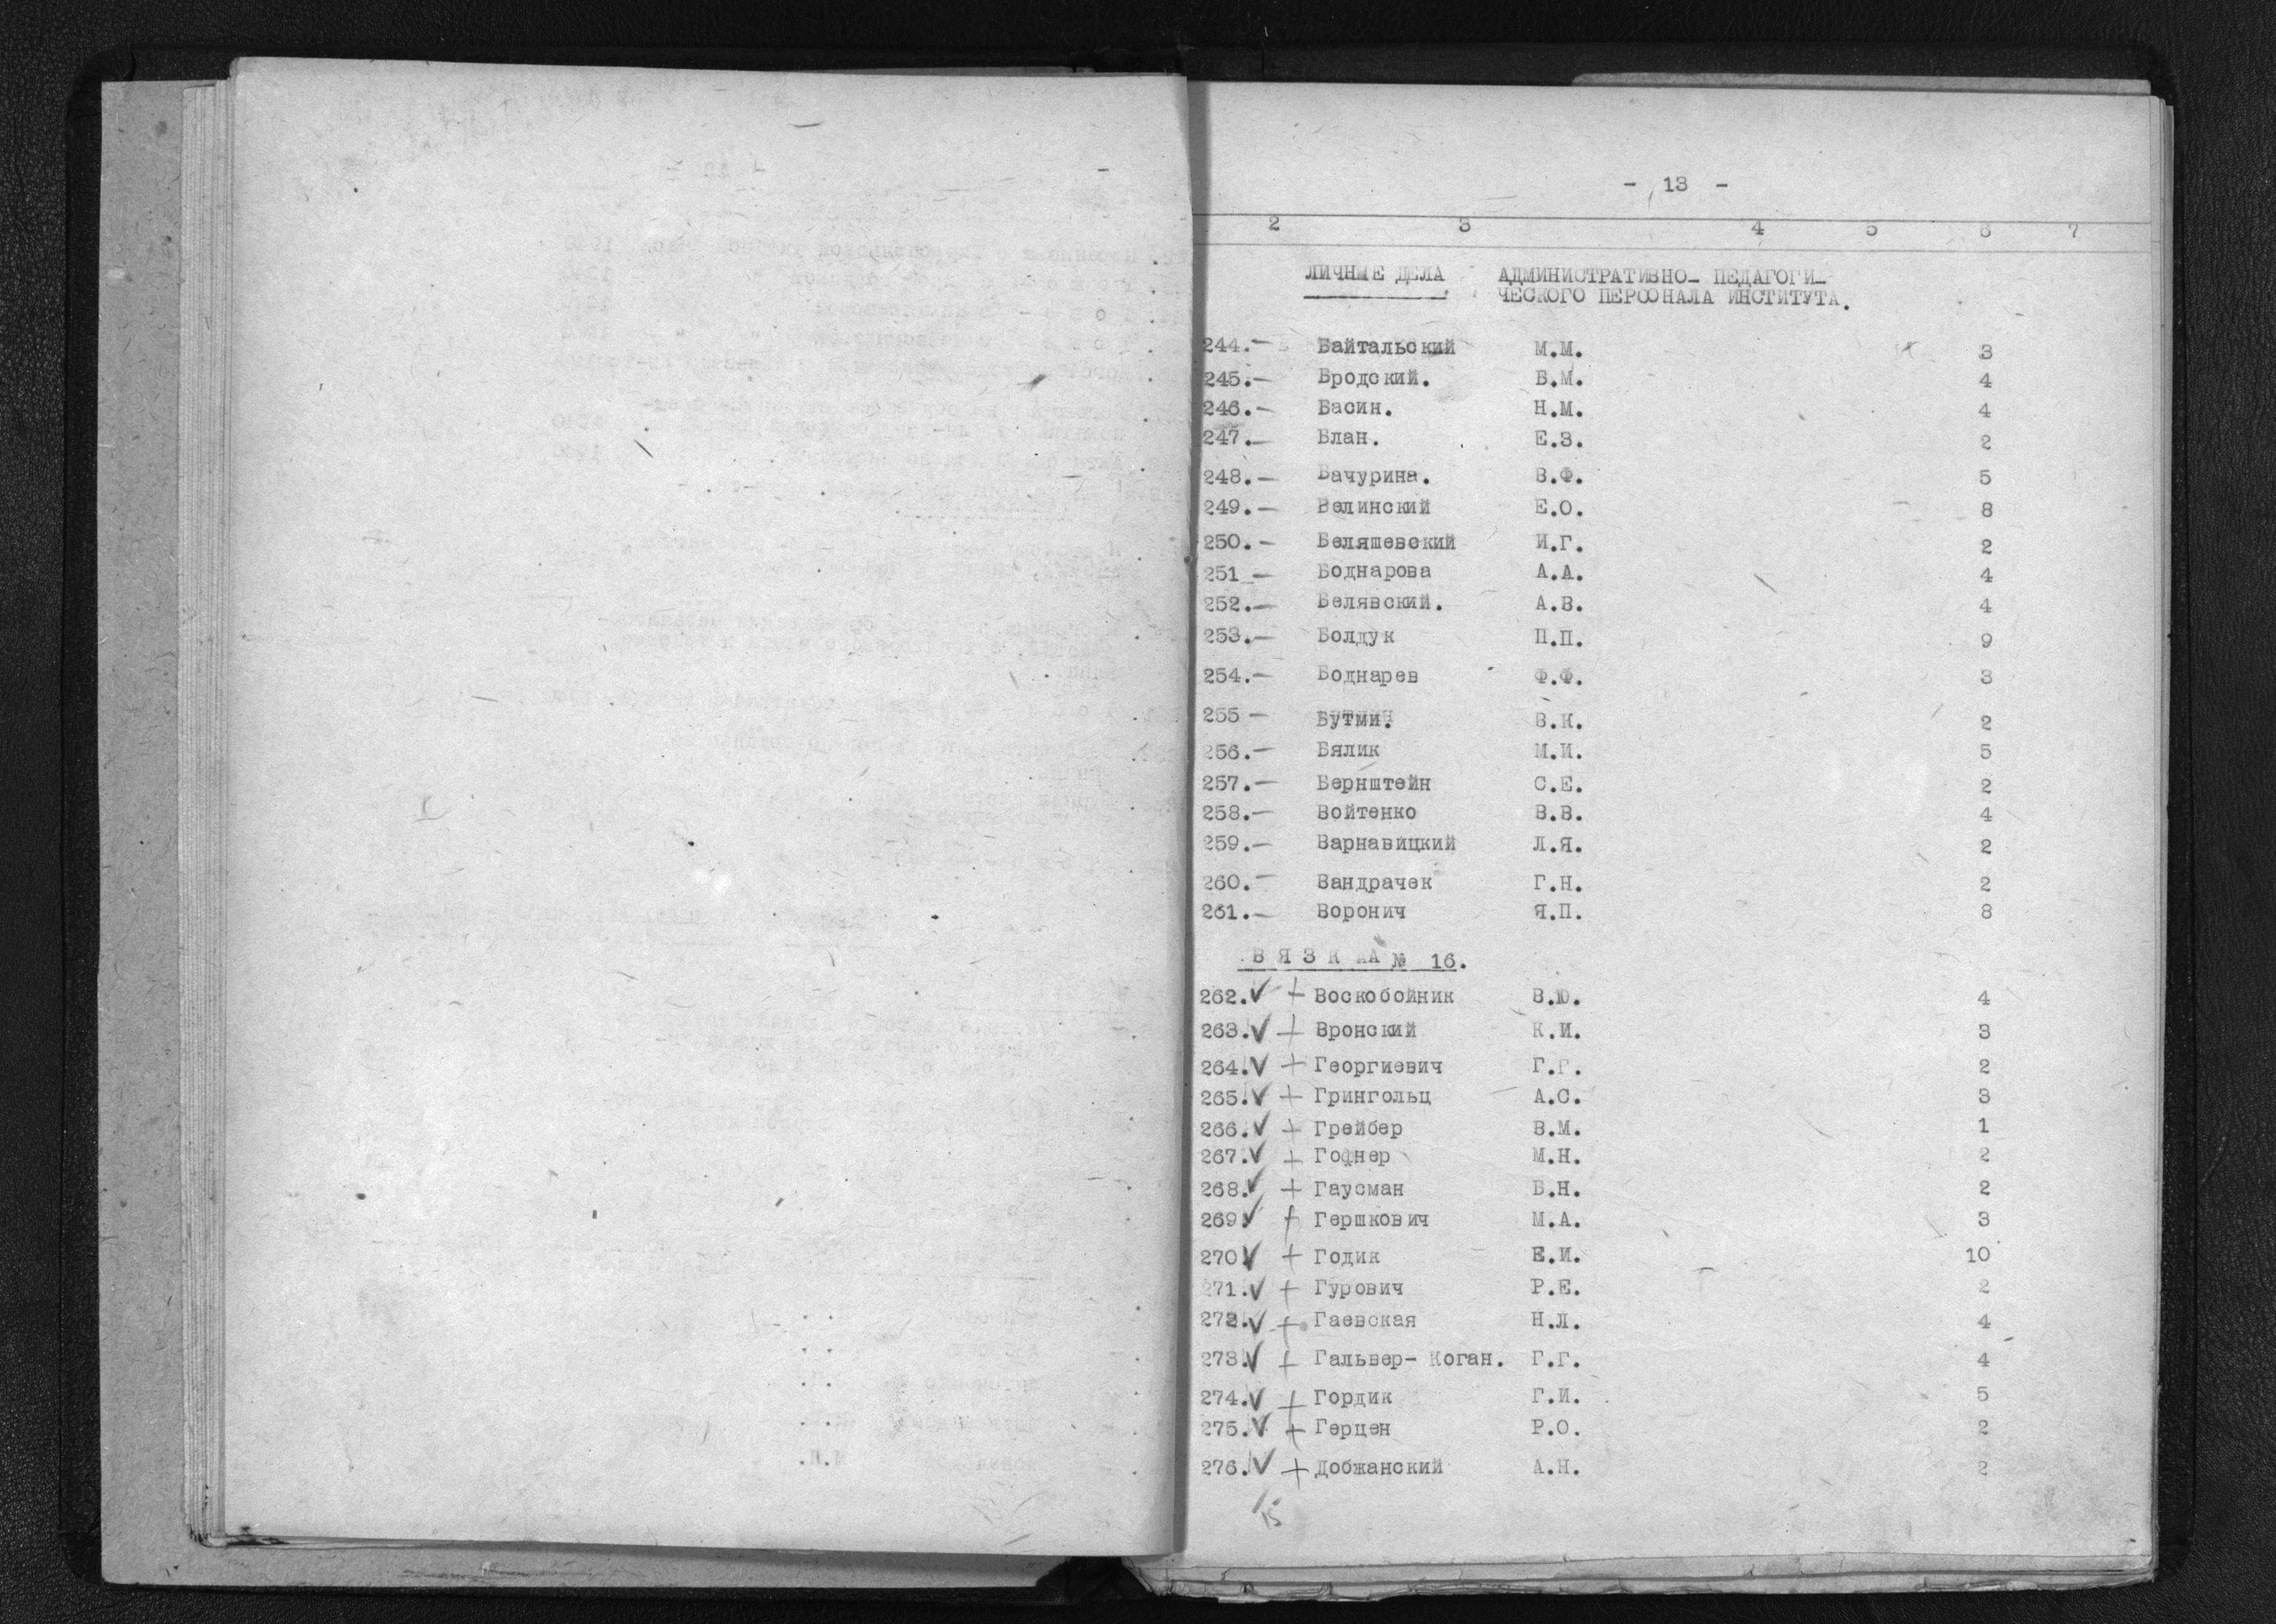 - 13 -
2 3 4 5 6 7
ЛИЧНЫЕ ДЕЛА АДМИНИСТРАТИВНО- ПЕДАГОГИ-
ЧЕСКОГО ПЕРСОНАЛА ИНСТИТУТА.
244.- Байтальский М.М. 3
245.- Бродский. Б.М. 4
246.- Басин. Н.М. 4
247.- Блан. Е.З. 2
248.- Бачурина. В.Ф. 5
249.- Велинский Е.О. 8
250.- Беляшевский И.Г. 2
251 - Боднарова А.А. 4
252.- Белявский. А.В. 4
253.- Болдук П.П. 9
254.- Боднарев Ф.Ф. 3
255 - Бутми. В.К. 2
256.- Бялик М.И. 5
257.- Бернштейн С.Е. 2
258.- Войтенко В.В. 4
259.- Варнавицкий Л.Я. 2
260.- Вандрачек Г.Н. 2
261.- Воронич Я.П. 8
В Я З К КА № 16.
262.✓ + Воскобойник В.Ю. 4
263.✓ + Вронский К.И. 3
264.✓ + Георгиевич Г.Г. 2
265.✓ + Грингольц А.С. 3
266.✓ + Грейбер В.М. 1
267.✓ + Гофнер М.Н. 2
268.✓ + Гаусман Б.Н. 2
269.✓ + Гершкович М.А. 3
270.✓ + Годик Е.И. 10
271.✓ + Гурович Р.Е. 2
272.✓ + Гаевская Н.Л. 4
273.✓ + Гальвер- Коган. Г.Г. 4
274.✓ + Гордик Г.И. 5
275.✓ + Герцен Р.О. 2
276.✓ + Добжанский А.Н. 2
15